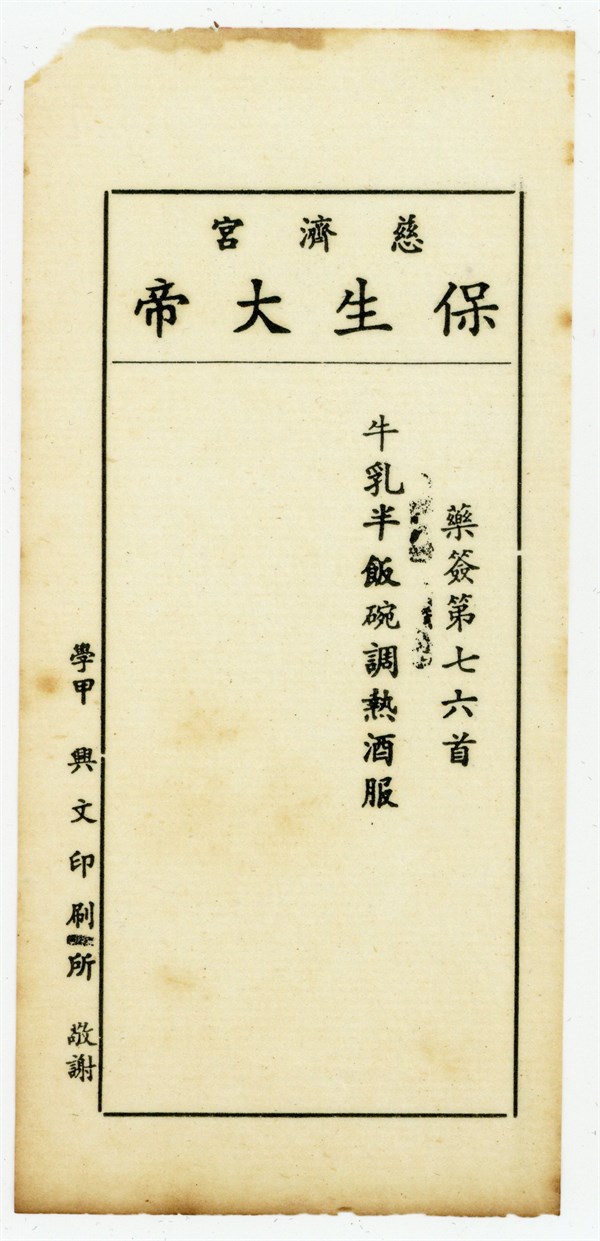 慈濟宮
保生大帝
藥簽第七六首
牛乳半飯碗調熱酒服
學甲 興文印刷所 敬謝